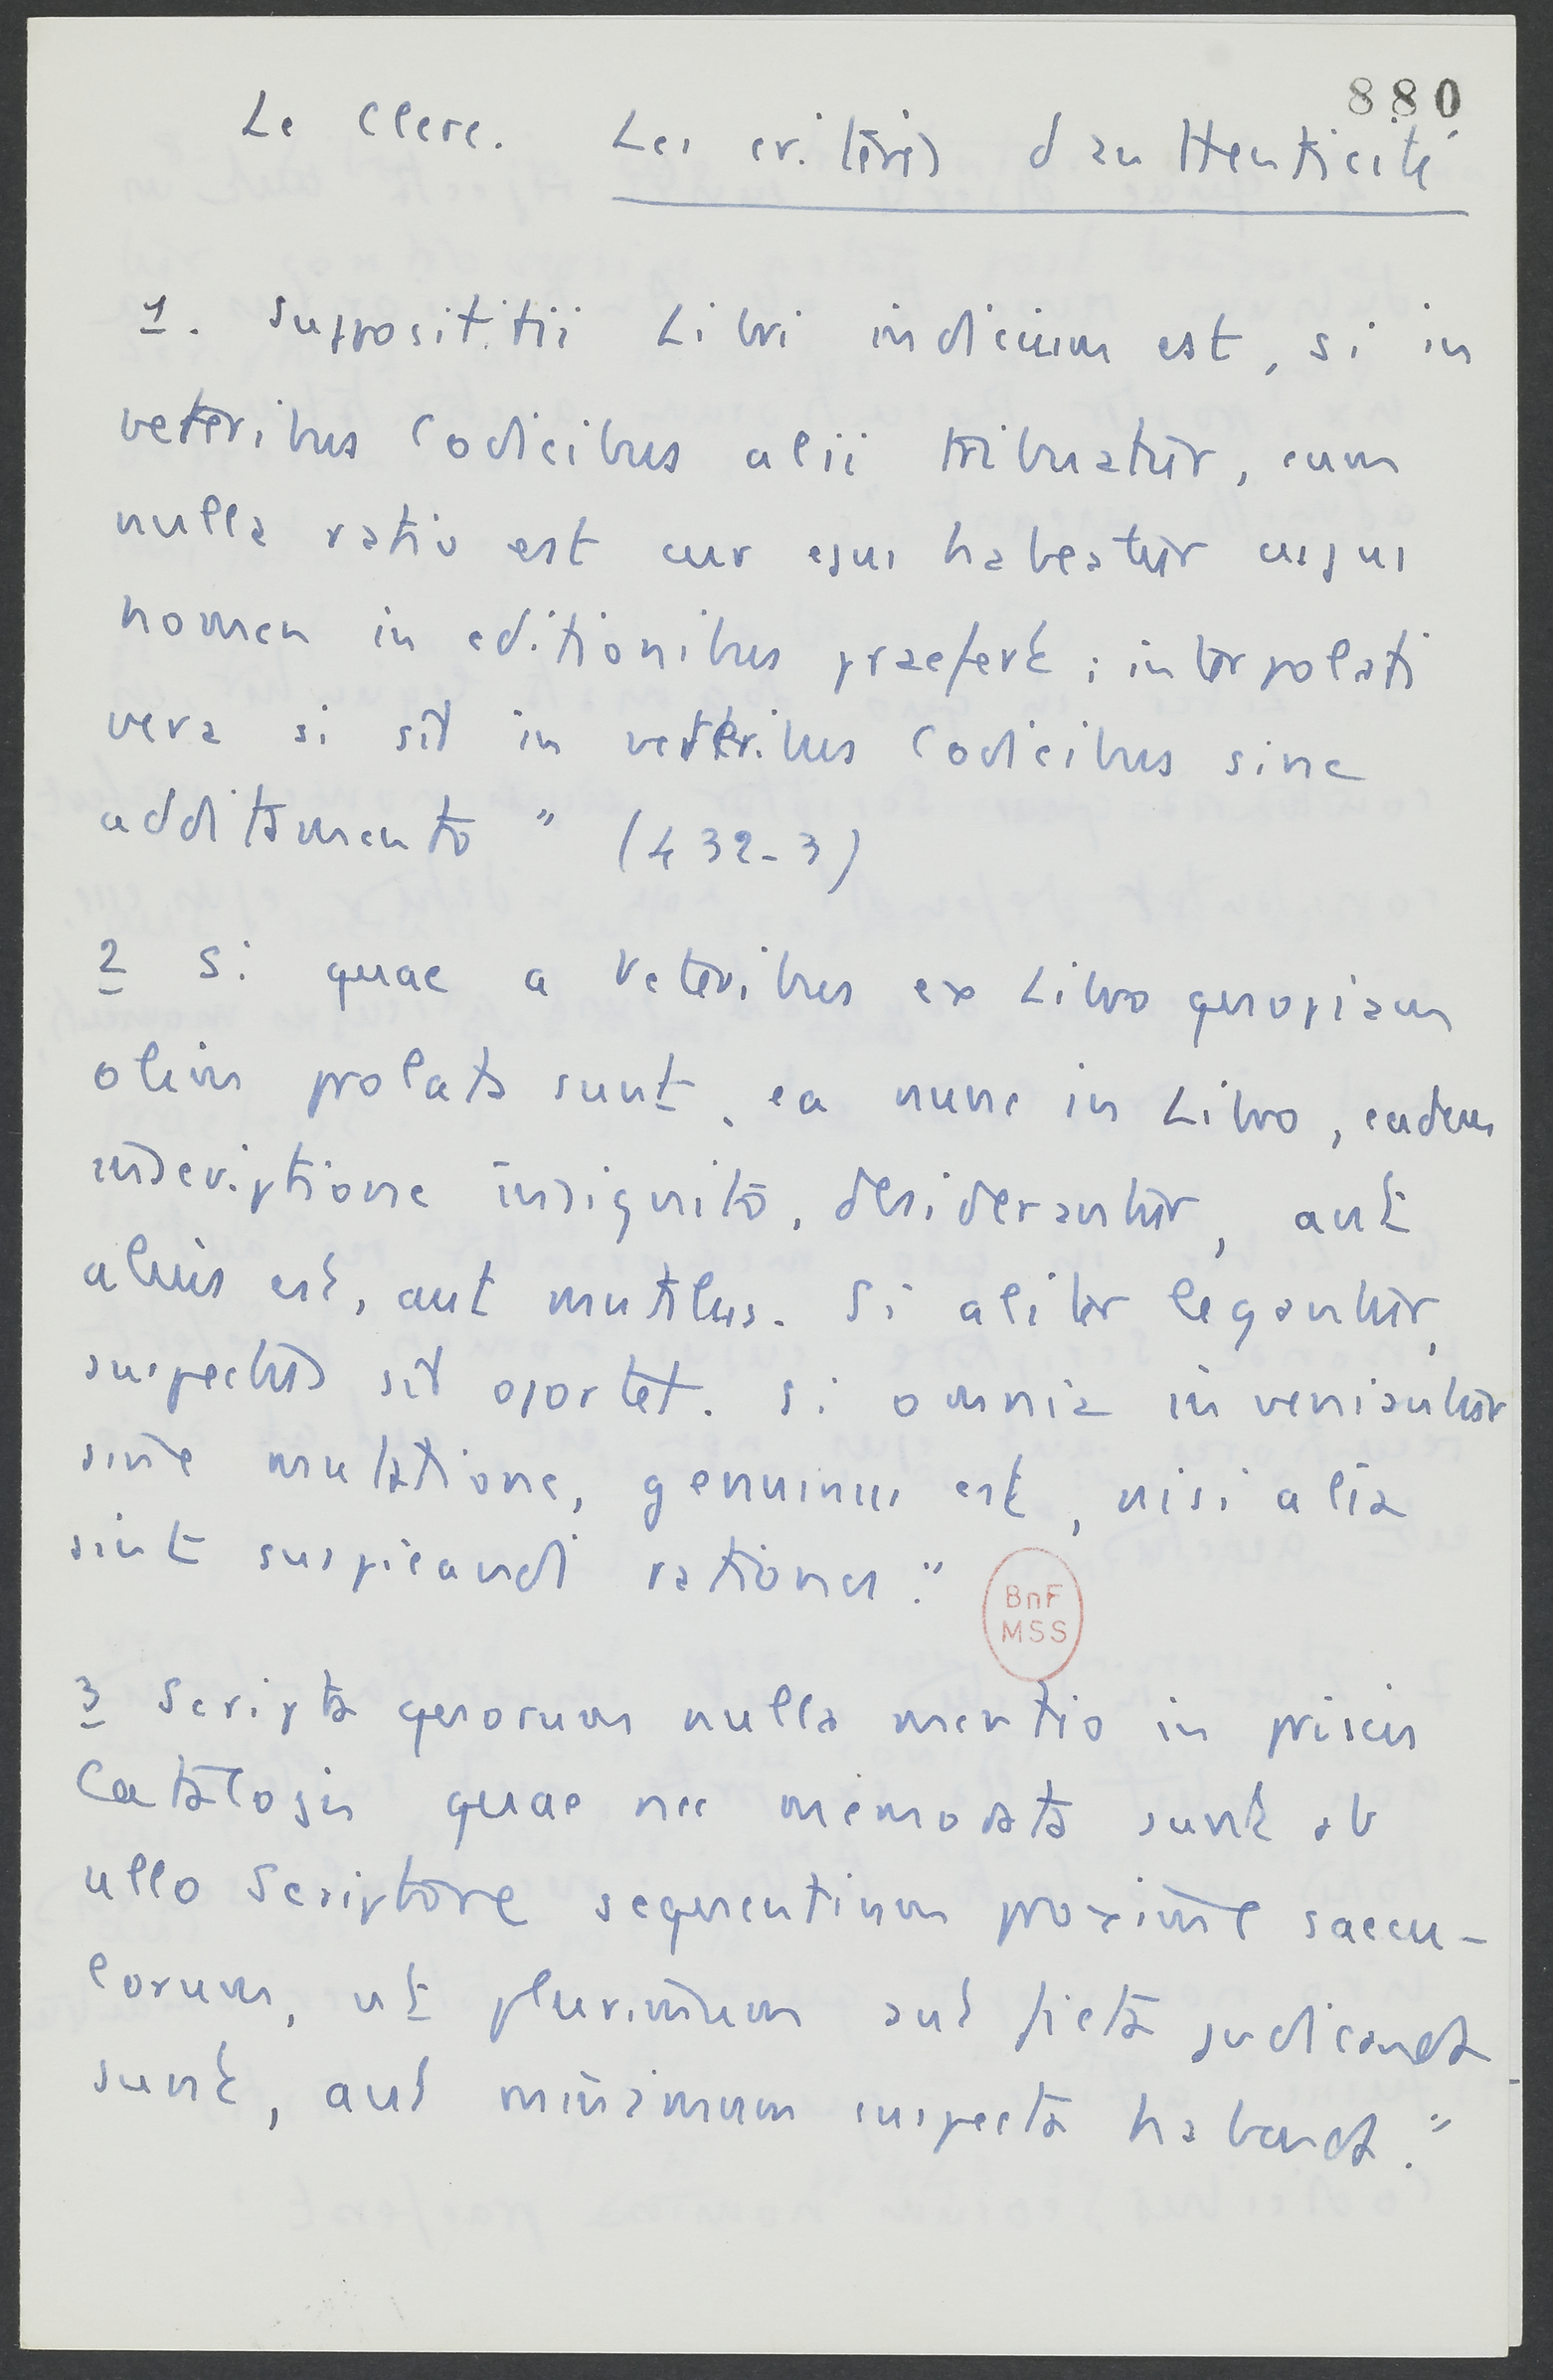 880
Le Clerc. Les critères d'authenticité
1. Supposititii Libri indicium est, si in
veteribus Codicibus alii tribuatur, cum
nulla ratio est cur ejus habeatur cujus
nomen in editionibus praefert ; interpolati
vera si sit in veteribus Codicibus sine
additamento " (432-3)
2 Si quae a Veteribus ex Libro quopiam
olim prolata sunt, ea nunc in Libro, eadem
inscriptione insignito, desiderantur, aut
alius est, aut mutilus. Si aliter legantur,
suspectus sit oportet. Si omnia inveniantur
sine mutatione, genuinus est, nisi alia
sint suspicandi rationes."
BnF
MSS
3 Scripta quorum nulla mentio in priscis
Catalogis quae nec memorata sunt ab
ullo Scriptore sequentium proxime saecu-
lorum, ut plurimum aut ficta judicanda
sunt, aut minimum suspecta habenda."